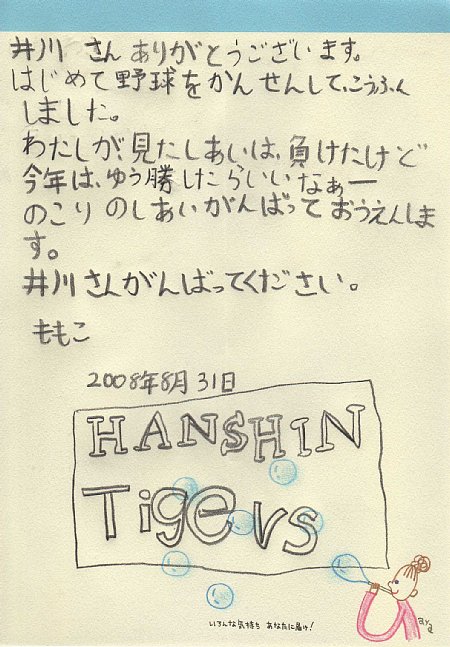 井川 さん ありがとうございます。
はじめて野球をかんせんして、こうふん
しました。
わたしが、見たしあいは、負けたけど
今年は、ゆう勝したらいいなぁー
のこりのしあいがんばっておうえんしま
す。
井川さんがんばってください。
ももこ
2008年8月31日
HANSHIN
Tigers
いろんな気持ち あなたに届け!